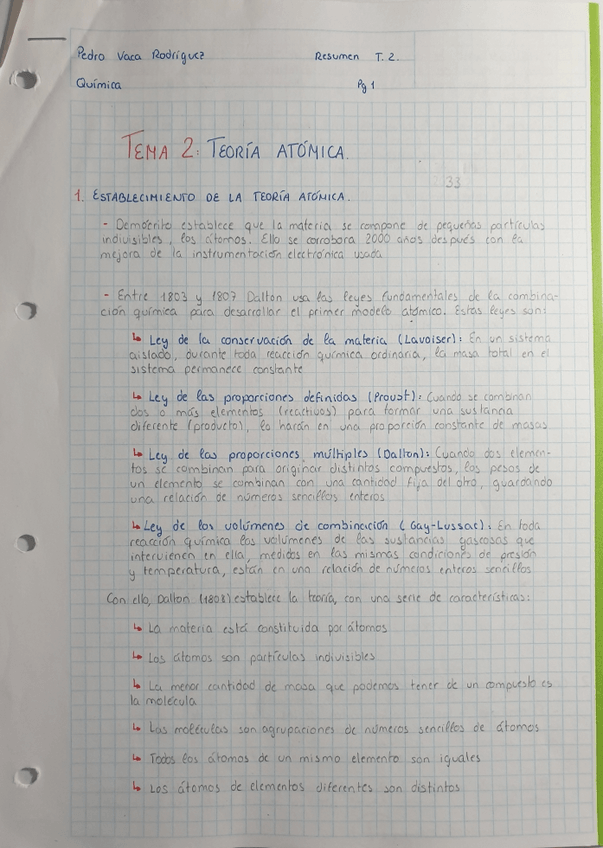 Pedro Vaca Rodríguez Resumen T. 2.
Química Pg 1
TEMA 2: TEORÍA ATÓMICA.
33
1. ESTABLECIMIENTO DE LA TEORÍA ATÓMICA.
- Demócrito establece que la materia se compone de pequeñas partículas
indivisibles, los átomos. Ello se corrobora 2000 años después con la
mejora de la instrumentación electrónica usada
- Entre 1803 y 1807 Dalton usa las leyes fundamentales de la combina-
ción química para desarrollar el primer modelo atómico. Estas leyes son:
↳ Ley de la conservación de la materia (Lavoiser): En un sistema
aislado, durante toda reacción química ordinaria, la masa total en el
sistema permanece constante
↳ Ley de las proporciones definidas (Proust): Cuando se combinan
dos o más elementos (reactivos) para formar una sustancia
diferente (producto), lo harán en una proporción constante de masas
↳ Ley de las proporciones múltiples (Dalton): Cuando dos elemen-
tos se combinan para originar distintos compuestos, los pesos de
un elemento se combinan con una cantidad fija del otro, guardando
una relación de números sencillos enteros
↳ Ley de los volúmenes de combinación (Gay-Lussac): En toda
reacción química los volúmenes de las sustancias gaseosas que
intervienen en ella, medidos en las mismas condiciones de presión
y temperatura, están en una relación de números enteros sencillos
Con ello, Dalton (1808) establece la teoría, con una serie de características:
↳ La materia está constituida por átomos
↳ Los átomos son partículas indivisibles
↳ La menor cantidad de masa que podemos tener de un compuesto es
la molécula
↳ Las moléculas son agrupaciones de números sencillos de átomos
↳ Todos los átomos de un mismo elemento son iguales
↳ Los átomos de elementos diferentes son distintos